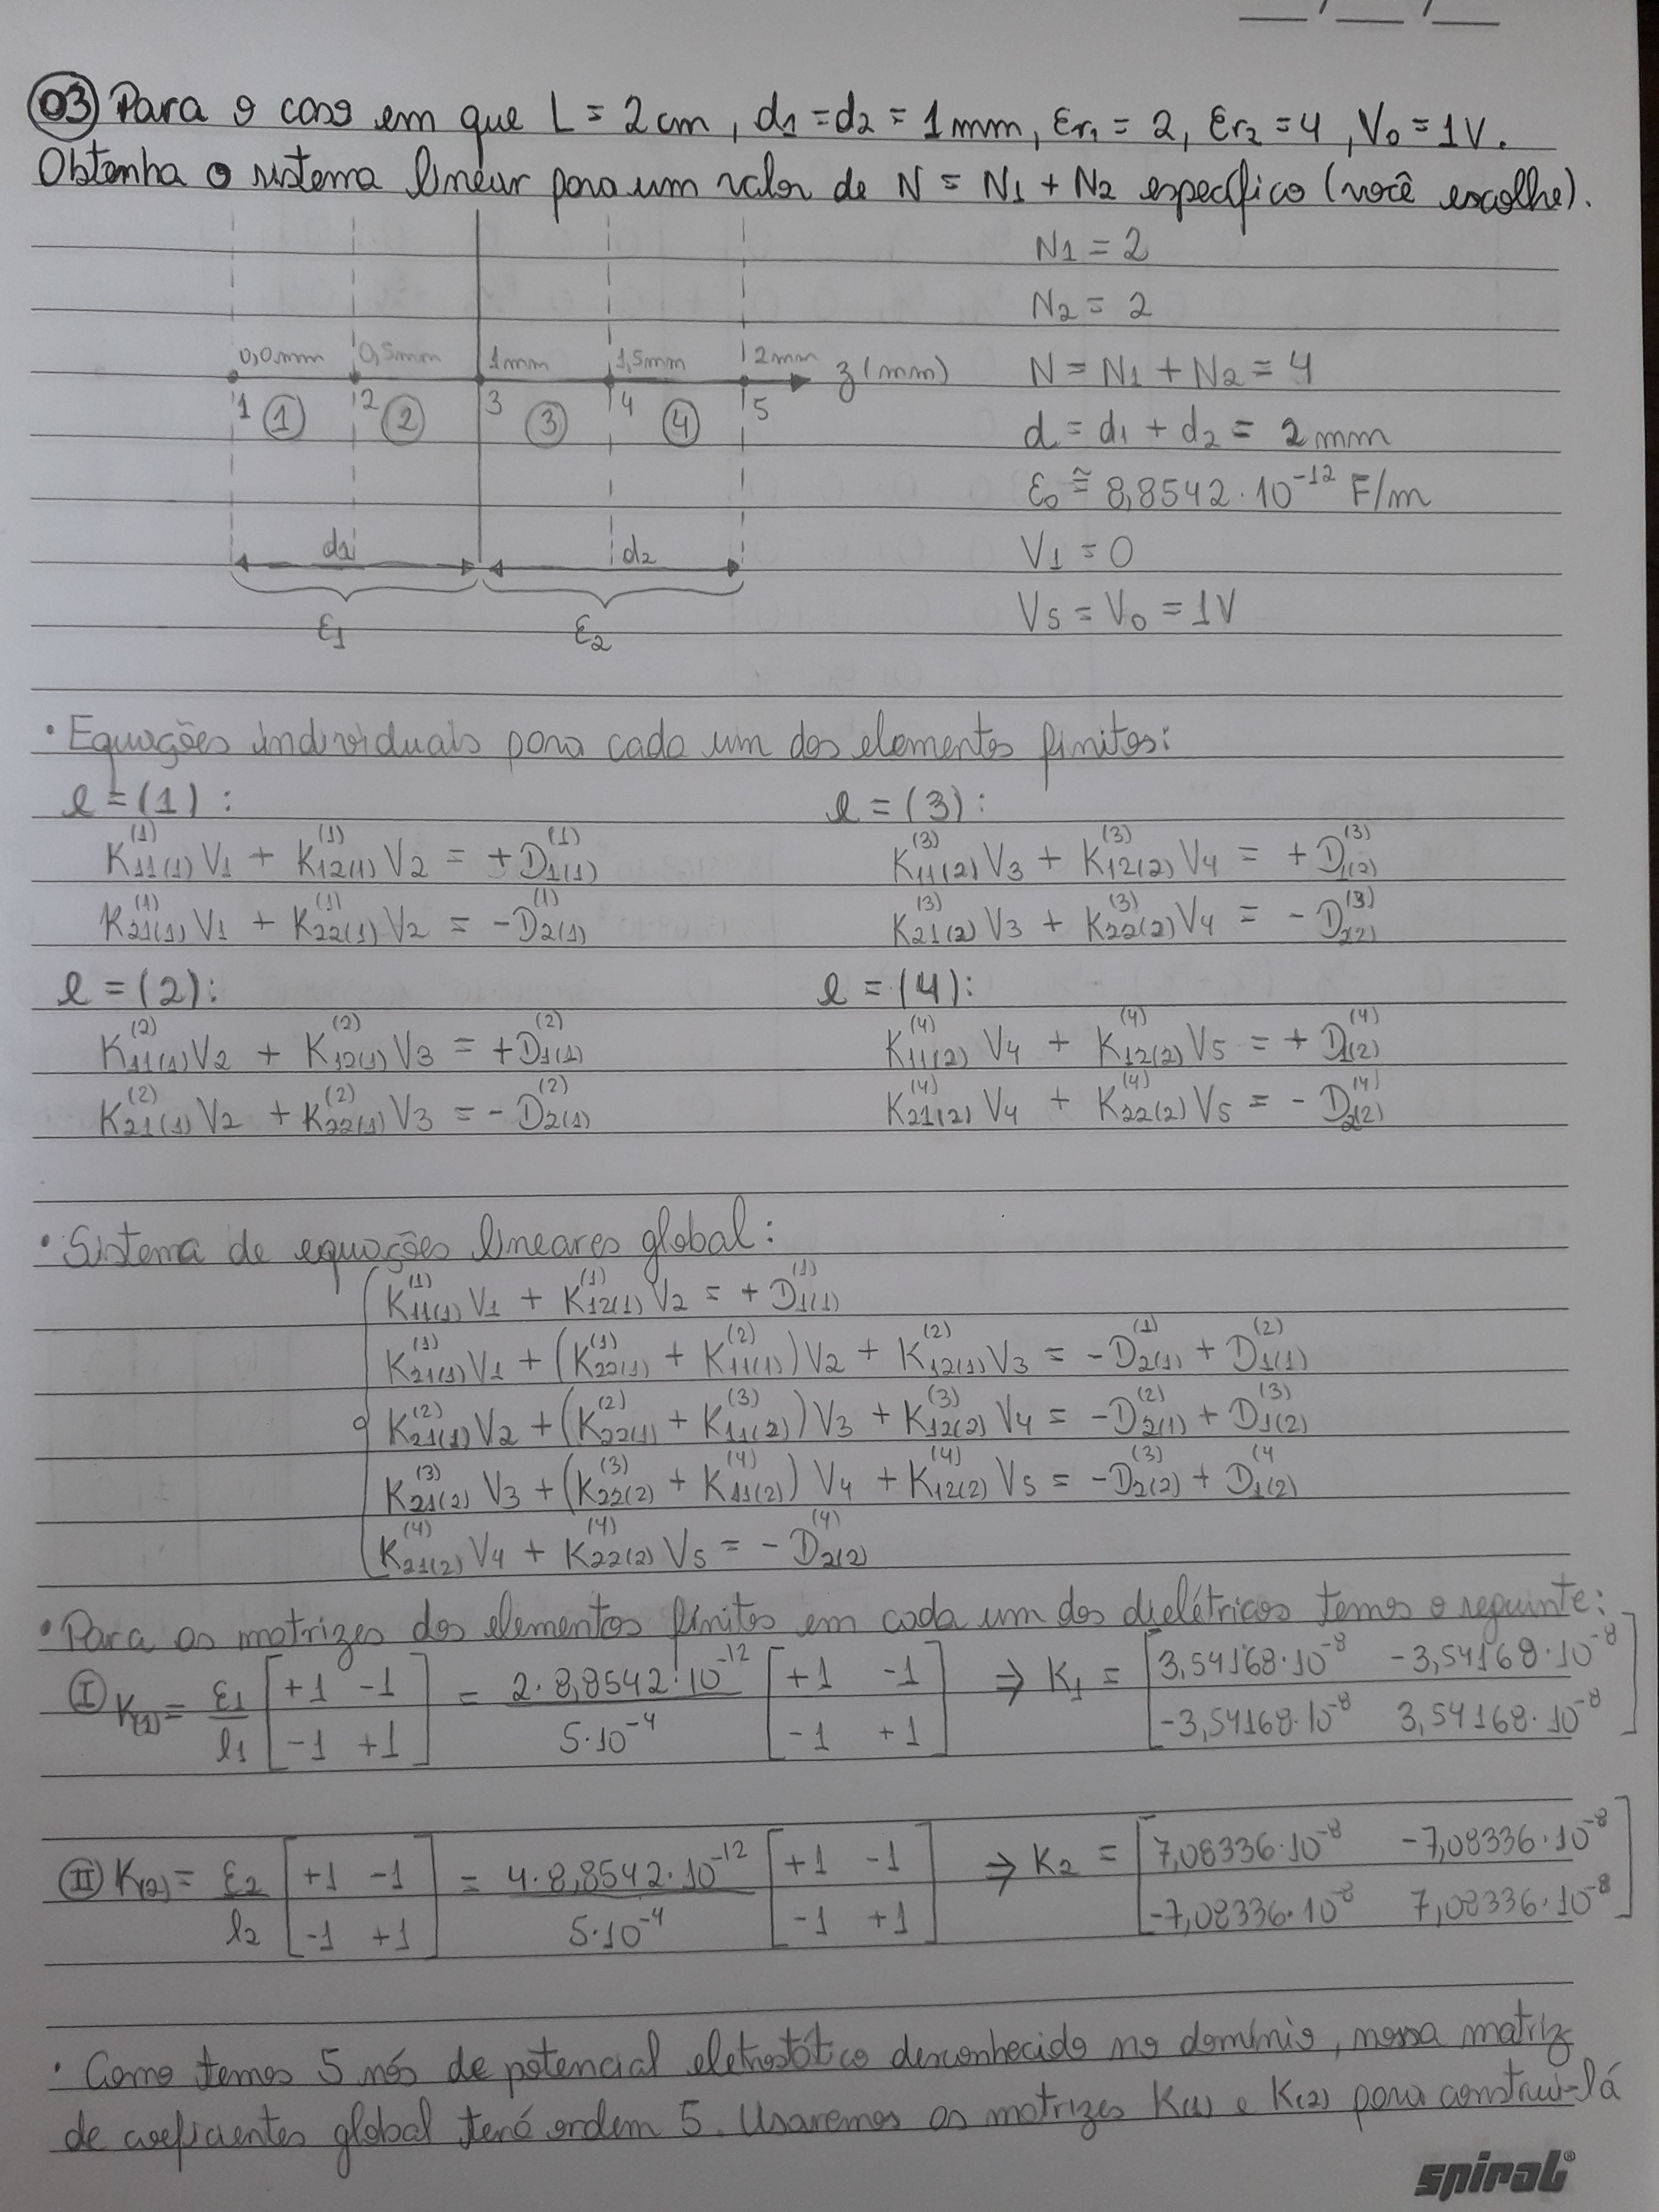 __/__/__
03 Para o caso em que L = 2cm, d1 = d2 = 1mm, Er1 = 2, Er2 = 4, V0 = 1V.
Obtenha o sistema linear para um valor de N = N1 + N2 específico (você escolhe).
N1 = 2
N2 = 2
0,0mm 0,5mm 1mm 1,5mm 2mm z(mm)
N = N1 + N2 = 4
1 (1) 2 (2) 3 (3) 4 (4) 5
d = d1 + d2 = 2mm
ε0 ≅ 8,8542·10^-12 F/m
d1 d2
V1 = 0
ε1 ε2
V5 = V0 = 1V
• Equações individuais para cada um dos elementos finitos:
l = (1): l = (3):
K11(1)^(1) V1 + K12(1)^(1) V2 = +D1(1)^(1) K11(2)^(3) V3 + K12(2)^(3) V4 = +D1(2)^(3)
K21(1)^(1) V1 + K22(1)^(1) V2 = -D2(1)^(1) K21(2)^(3) V3 + K22(2)^(3) V4 = -D2(2)^(3)
l = (2): l = (4):
K11(1)^(2) V2 + K12(1)^(2) V3 = +D1(1)^(2) K11(2)^(4) V4 + K12(2)^(4) V5 = +D1(2)^(4)
K21(1)^(2) V2 + K22(1)^(2) V3 = -D2(1)^(2) K21(2)^(4) V4 + K22(2)^(4) V5 = -D2(2)^(4)
• Sistema de equações lineares global:
K11(1)^(1) V1 + K12(1)^(1) V2 = +D1(1)^(1)
K21(1)^(1) V1 + (K22(1)^(1) + K11(1)^(2)) V2 + K12(1)^(2) V3 = -D2(1)^(1) + D1(1)^(2)
K21(1)^(2) V2 + (K22(1)^(2) + K11(2)^(3)) V3 + K12(2)^(3) V4 = -D2(1)^(2) + D1(2)^(3)
K21(2)^(3) V3 + (K22(2)^(3) + K11(2)^(4)) V4 + K12(2)^(4) V5 = -D2(2)^(3) + D1(2)^(4
K21(2)^(4) V4 + K22(2)^(4) V5 = -D2(2)^(4)
• Para as matrizes dos elementos finitos em cada um dos dielétricos temos o seguinte:
I K(1) = ε1/l1 [+1 -1; -1 +1] = 2·8,8542·10^-12 / 5·10^-4 [+1 -1; -1 +1] ⇒ K1 = [3,54168·10^-8 -3,54168·10^-8; -3,54168·10^-8 3,54168·10^-8]
II K(2) = ε2/l2 [+1 -1; -1 +1] = 4·8,8542·10^-12 / 5·10^-4 [+1 -1; -1 +1] ⇒ K2 = [7,08336·10^-8 -7,08336·10^-8; -7,08336·10^-8 7,08336·10^-8]
• Como temos 5 nós de potencial eletrostático desconhecido no domínio, nossa matriz
de coeficientes global terá ordem 5. Usaremos as matrizes K(1) e K(2) para construí-lá
spiral®